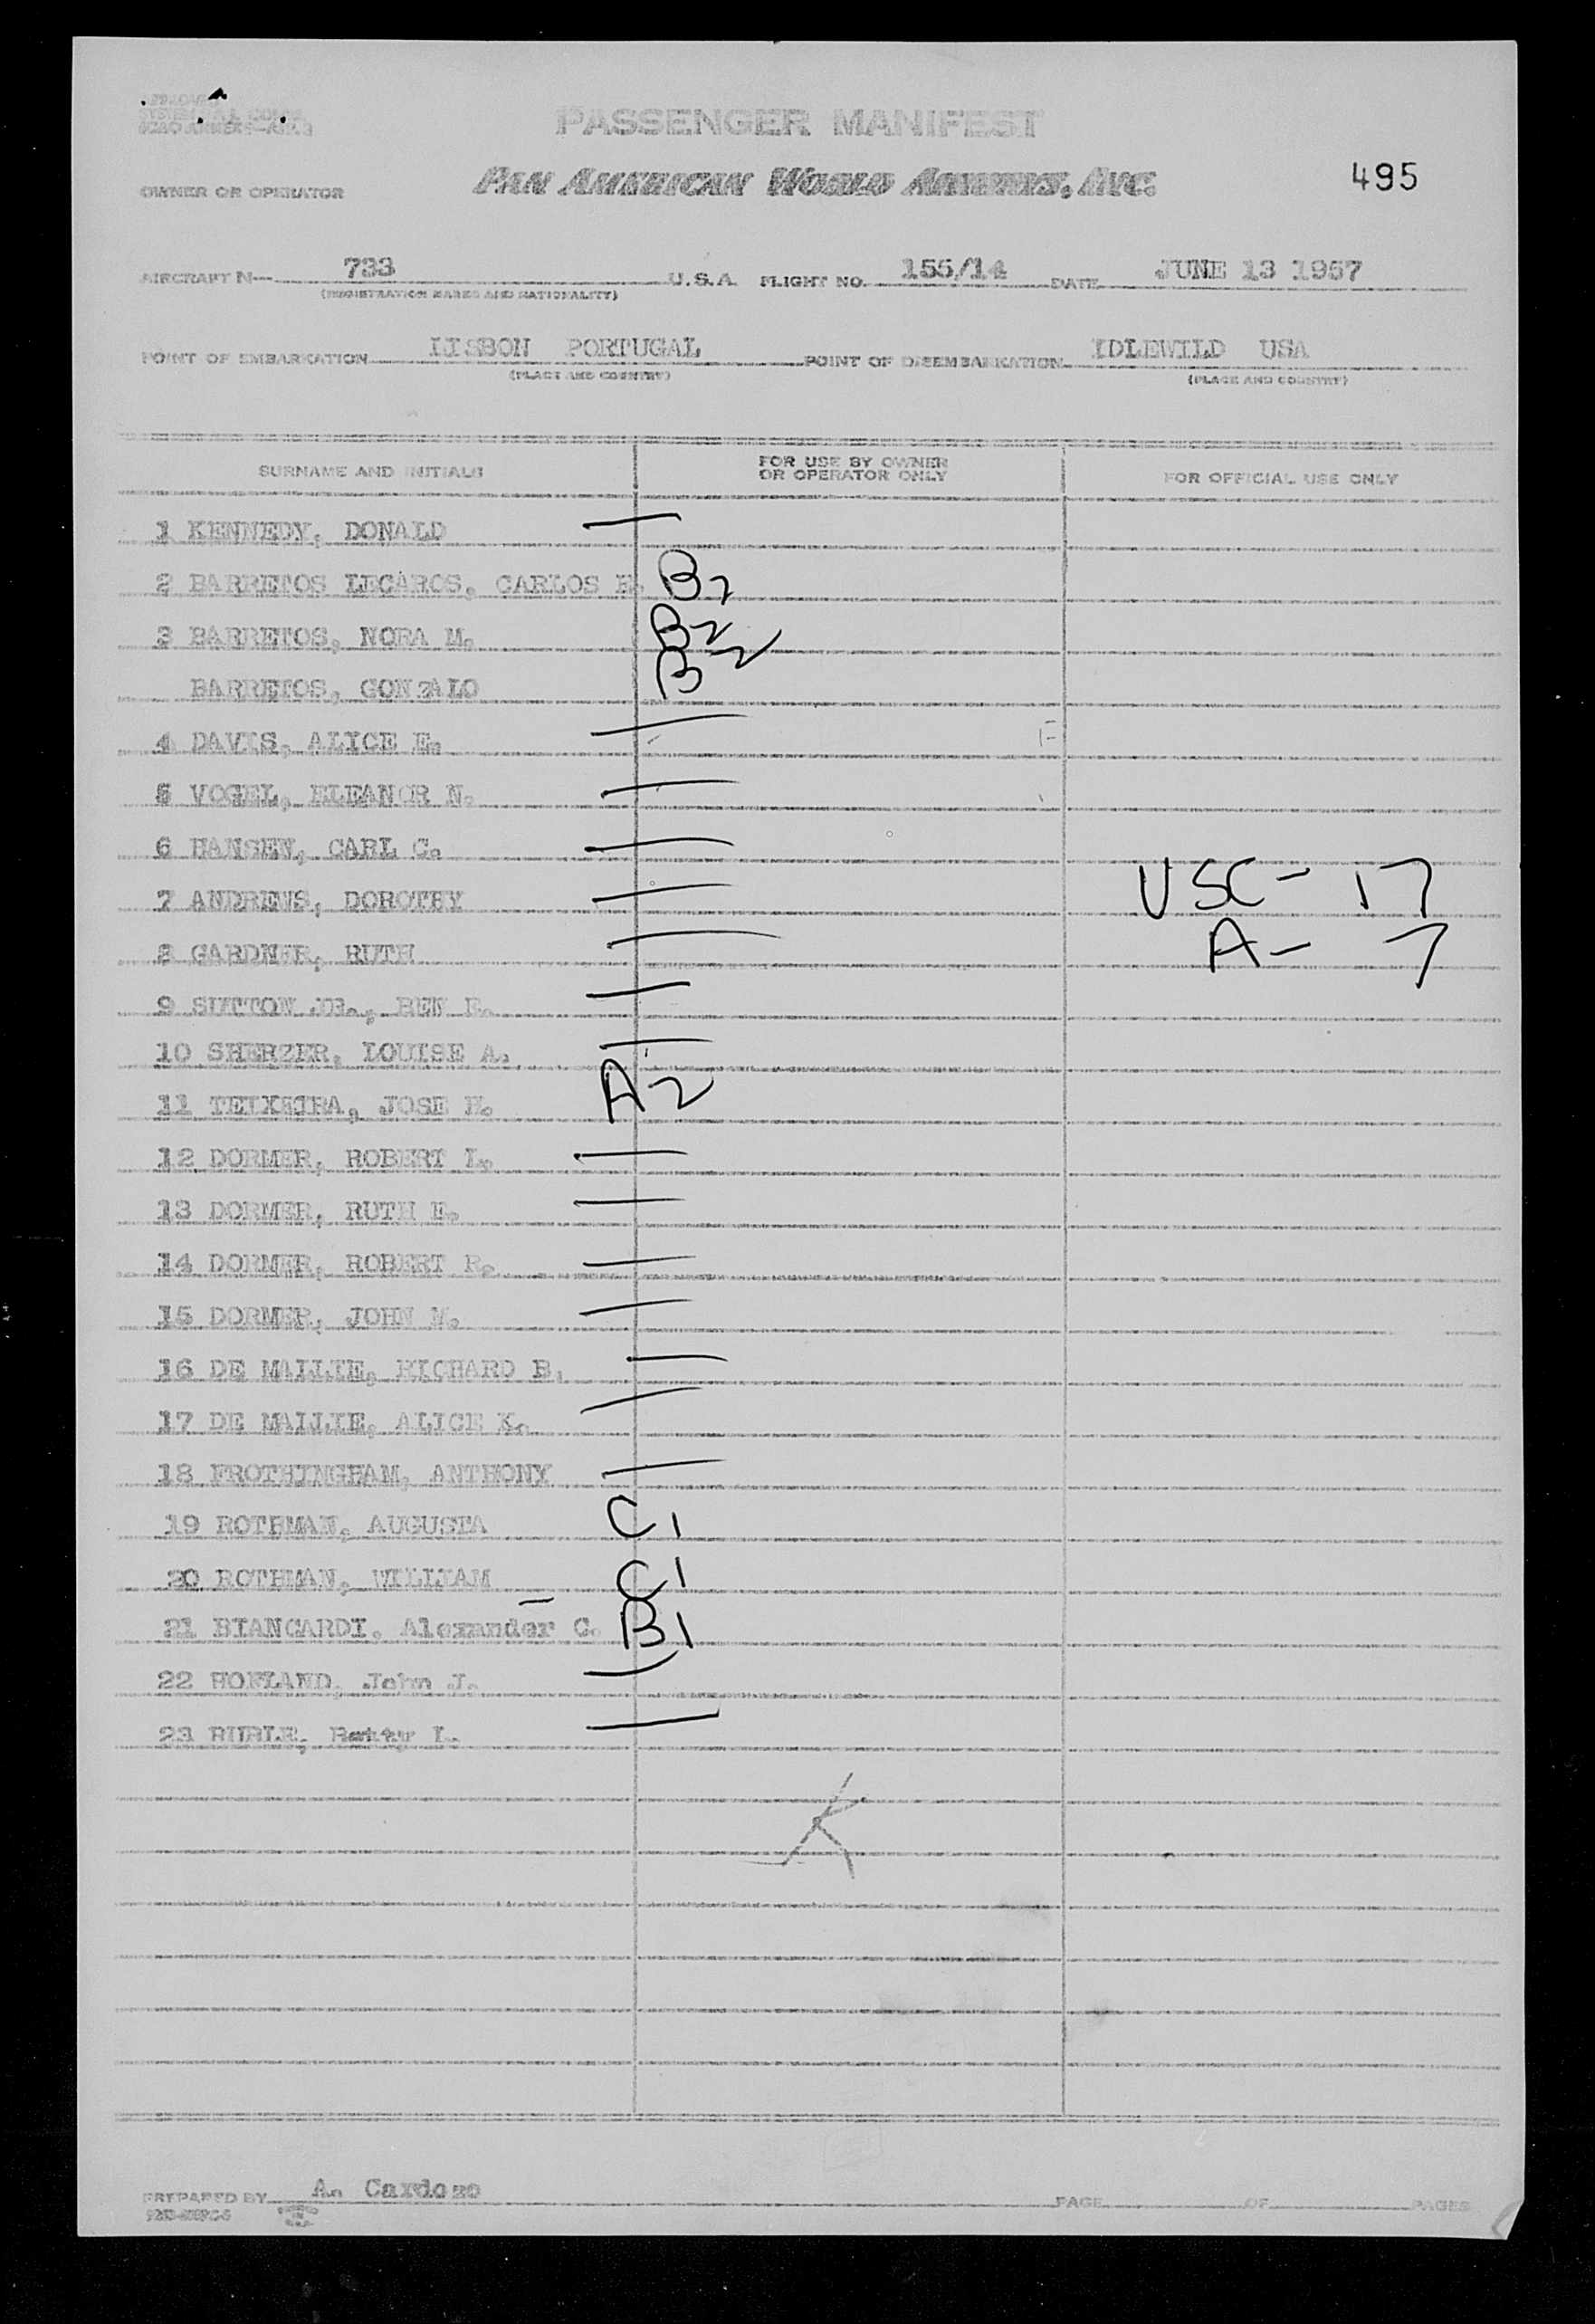 PASSENGER MANIFEST
OWNER OR OPERATOR PAN AMERICAN WORLD AIRWAYS, INC. 495
AIRCRAFT N— 733 U.S.A. FLIGHT NO. 155/14 DATE JUNE 13 1957
(REGISTRATION MARKS AND NATIONALITY)
POINT OF EMBARKATION LISBON PORTUGAL POINT OF DISEMBARKATION IDLEWILD USA
(PLACE AND COUNTRY) (PLACE AND COUNTRY)
SURNAME AND INITIALS FOR USE BY OWNER OR OPERATOR ONLY FOR OFFICIAL USE ONLY
1 KENNEDY, DONALD —
2 BARRETOS LECAROS, CARLOS E. B2
3 BARRETOS, NORA M. B2
BARRETOS, GONZALO B2
4 DAVIS, ALICE E. —
5 VOGEL, ELEANOR N. —
6 HANSEN, CARL C. —
7 ANDREWS, DOROTHY — USC- 17
8 GARDNER, RUTH — A- 7
9 SUTTON JR., BEN —
10 SHERZER, LOUISE A. —
11 TEIXEIRA, JOSE A2
12 DORMER, ROBERT L. —
13 DORMER, RUTH E. —
14 DORMER, ROBERT R. —
15 DORMER, JOHN —
16 DE MAILLIE, RICHARD B. —
17 DE MAILLIE, ALICE K. —
18 FROTHINGHAM, ANTHONY —
19 ROTHMAN, AUGUSTA C1
20 ROTHMAN, WILLIAM C1
21 BIANCARDI, Alexander C. B1
22 HOFLAND, John J. —
23 RUBLE, Betty L. —
PREPARED BY A. Cardozo PAGE OF PAGES